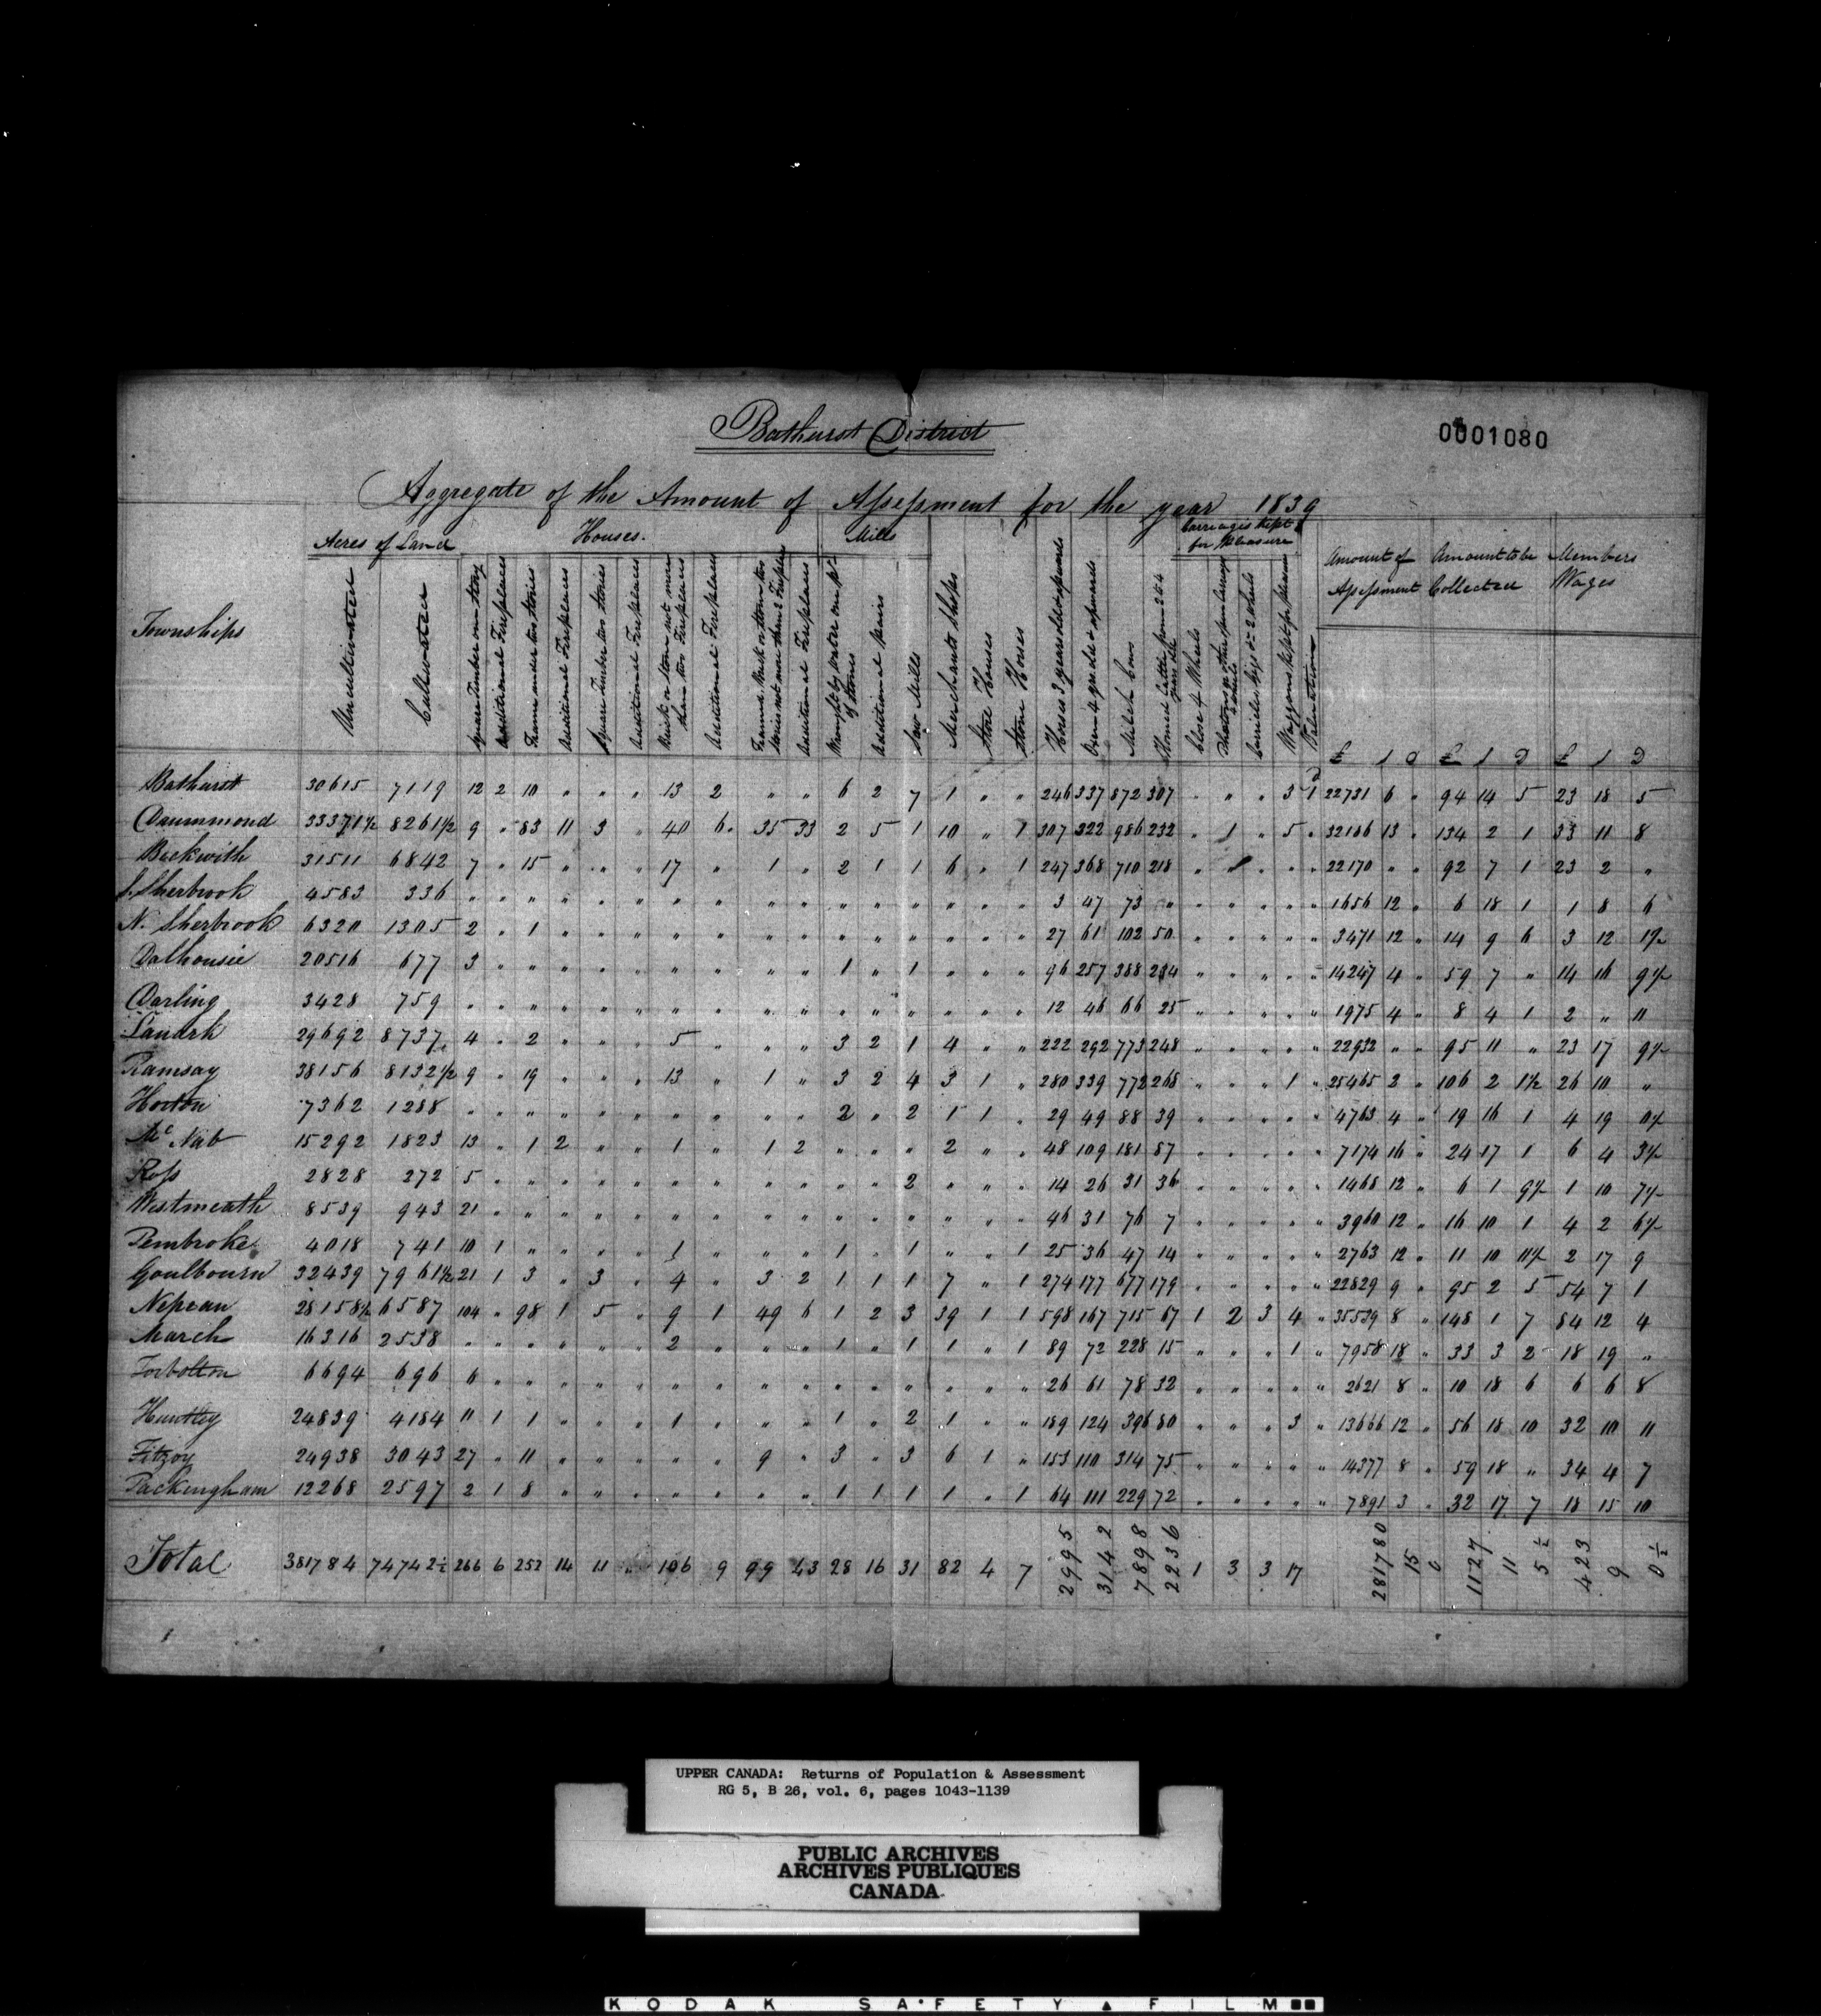 Bathurst District
0001080
Aggregate of the Amount of Assessment for the year 1839
Townships
Acres of Land
Houses.
Mills
Carriages kept for Pleasure
Amount of Assessment
Amount to be Collected
Members Wages
Uncultivated
Cultivated
Square Timber one story
Additional Fireplaces
Frame under two stories
Additional Fireplaces
Square Timber two stories
Additional Fireplaces
Brick or Stone not more than two Fireplaces
Additional Fireplaces
Frame Brick or Stone two stories not more than 2 Fireplaces
Additional Fireplaces
Wrought by Water one pr of stones
Additional pairs
Saw Mills
Merchants Shops
Store Houses
Stone Horses
Horses 3 years old & upwards
Oxen 4 yrs old & upwards
Milch Cows
Horned Cattle from 2 to 4 years old
Close 4 Wheels
Phaetons or other open Carriages 4 wheels
Curricles Gigs &c 2 wheels
Waggons kept for pleasure
Valuation
£ s D £ s D £ s D
Bathurst 30615 7119 12 2 10 " " " 13 2 " " 6 2 7 1 " " 246 337 872 307 " " " 3 1 22731 6 " 94 14 5 23 18 5
Drummond 33371½ 8261½ 9 " 83 11 3 " 40 6 35 33 2 5 1 10 " 1 307 322 986 232 " 1 " 5 " 32186 13 " 134 2 1 33 11 8
Beckwith 31511 6842 7 " 15 " " " 17 " 1 " 2 1 1 6 " 1 247 368 710 218 " " " " 22170 " " 92 7 1 23 2 "
S. Sherbrook 4583 336 " " " " " " " " " " " " " " " " 3 47 73 " " " " " " 1656 12 " 6 18 1 1 8 6
N. Sherbrook 6320 1305 2 " 1 " " " " " " " " " " " " " 27 61 102 50 " " " " " 3471 12 " 14 9 6 3 12
Dalhousie 20516 677 3 " " " " " " " " " 1 " 1 " " " 96 257 388 234 " " " " " 14247 4 " 59 7 " 14 16 9½
Darling 3428 759 " " " " " " " " " " " " " " " " 12 46 66 25 " " " " " 1975 4 " 8 4 1 2 " 11
Lanark 29692 8737 4 " 2 " " " 5 " " " 3 2 1 4 " " 222 292 773 248 " " " " " 22932 " " 95 11 " 23 17 9½
Ramsay 38156 8132½ 9 " 19 " " " 13 " 1 " 3 2 4 3 1 " 280 339 772 268 " " " 1 " 25465 2 " 106 2 1½ 26 10 "
Horton 7362 1288 " " " " " " " " " " 2 " 2 1 1 " 29 49 88 39 " " " " " 4763 4 " 19 16 1 4 19
Mc Nab 15292 1823 13 " 1 2 " " 1 " 1 2 " " " 2 " " 48 109 181 87 " " " " " 7174 16 " 24 17 1 6 4 3½
Ross 2828 272 5 " " " " " " " " " " " 2 " " " 14 26 31 36 " " " " " 1468 12 " 6 1 9½ 1 10 7½
Westmeath 8539 943 21 " " " " " " " " " " " " " " " 46 31 76 7 " " " " " 3960 12 " 16 10 1 4 2 6½
Pembroke 4018 741 10 1 " " " " 1 " " " 1 " 1 " " 1 25 36 47 14 " " " " " 2763 12 " 11 10 11½ 2 17 9
Goulbourn 32439 7961½ 21 1 3 " 3 " 4 " 3 2 1 1 1 7 " 1 274 177 677 179 " " " " " 22829 9 " 95 2 5 54 7 1
Nepean 28158½ 6587 104 " 98 1 5 " 9 1 49 6 1 2 3 39 1 1 598 167 715 67 1 2 3 4 " 35539 8 " 148 1 7 84 12 4
March 16316 2538 " " " " " " 2 " " " 1 " 1 1 " 1 89 72 228 15 " " " 1 " 7958 18 " 33 3 2 18 19 "
Torbolton 6694 696 6 " " " " " " " " " " " " " " " 26 61 78 32 " " " " " 2621 8 " 10 18 6 6 6 8
Huntley 24839 4184 11 1 1 " " " 1 " " " 1 " 2 1 " " 189 124 396 80 " " " 3 " 13666 12 " 56 18 10 32 10 11
Fitzoy 24938 3043 27 " 11 " " " " " 9 " 3 " 3 6 1 " 153 110 314 75 " " " " " 14377 8 " 59 18 " 34 4 7
Packingham 12268 2597 2 1 8 " " " " " " " 1 1 1 1 " 1 64 111 229 72 " " " " " 7891 3 " 32 17 7 18 15 10
Total 381784 74742½ 266 6 252 14 11 " 106 9 99 43 28 16 31 82 4 7 2995 3142 7898 2236 1 3 3 17 281780 15 0 1127 11 5½ 423 9 0½
UPPER CANADA: Returns of Population & Assessment
RG 5, B 26, vol. 6, pages 1043-1139
PUBLIC ARCHIVES
ARCHIVES PUBLIQUES
CANADA
KODAK SAFETY FILM